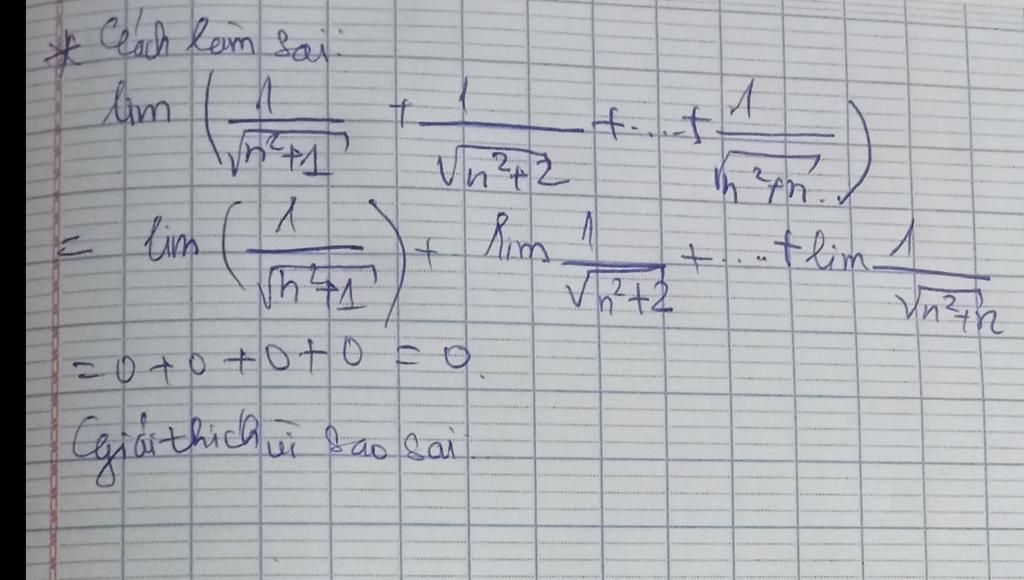 * Cách làm sai:
lim ( 1/√(n²+1) + 1/√(n²+2) + ... + 1/√(n²+n) )
= lim ( 1/√(n²+1) ) + lim 1/√(n²+2) + ... + lim 1/√(n²+n)
= 0 + 0 + 0 + 0 = 0.
Giải thích vì sao sai.